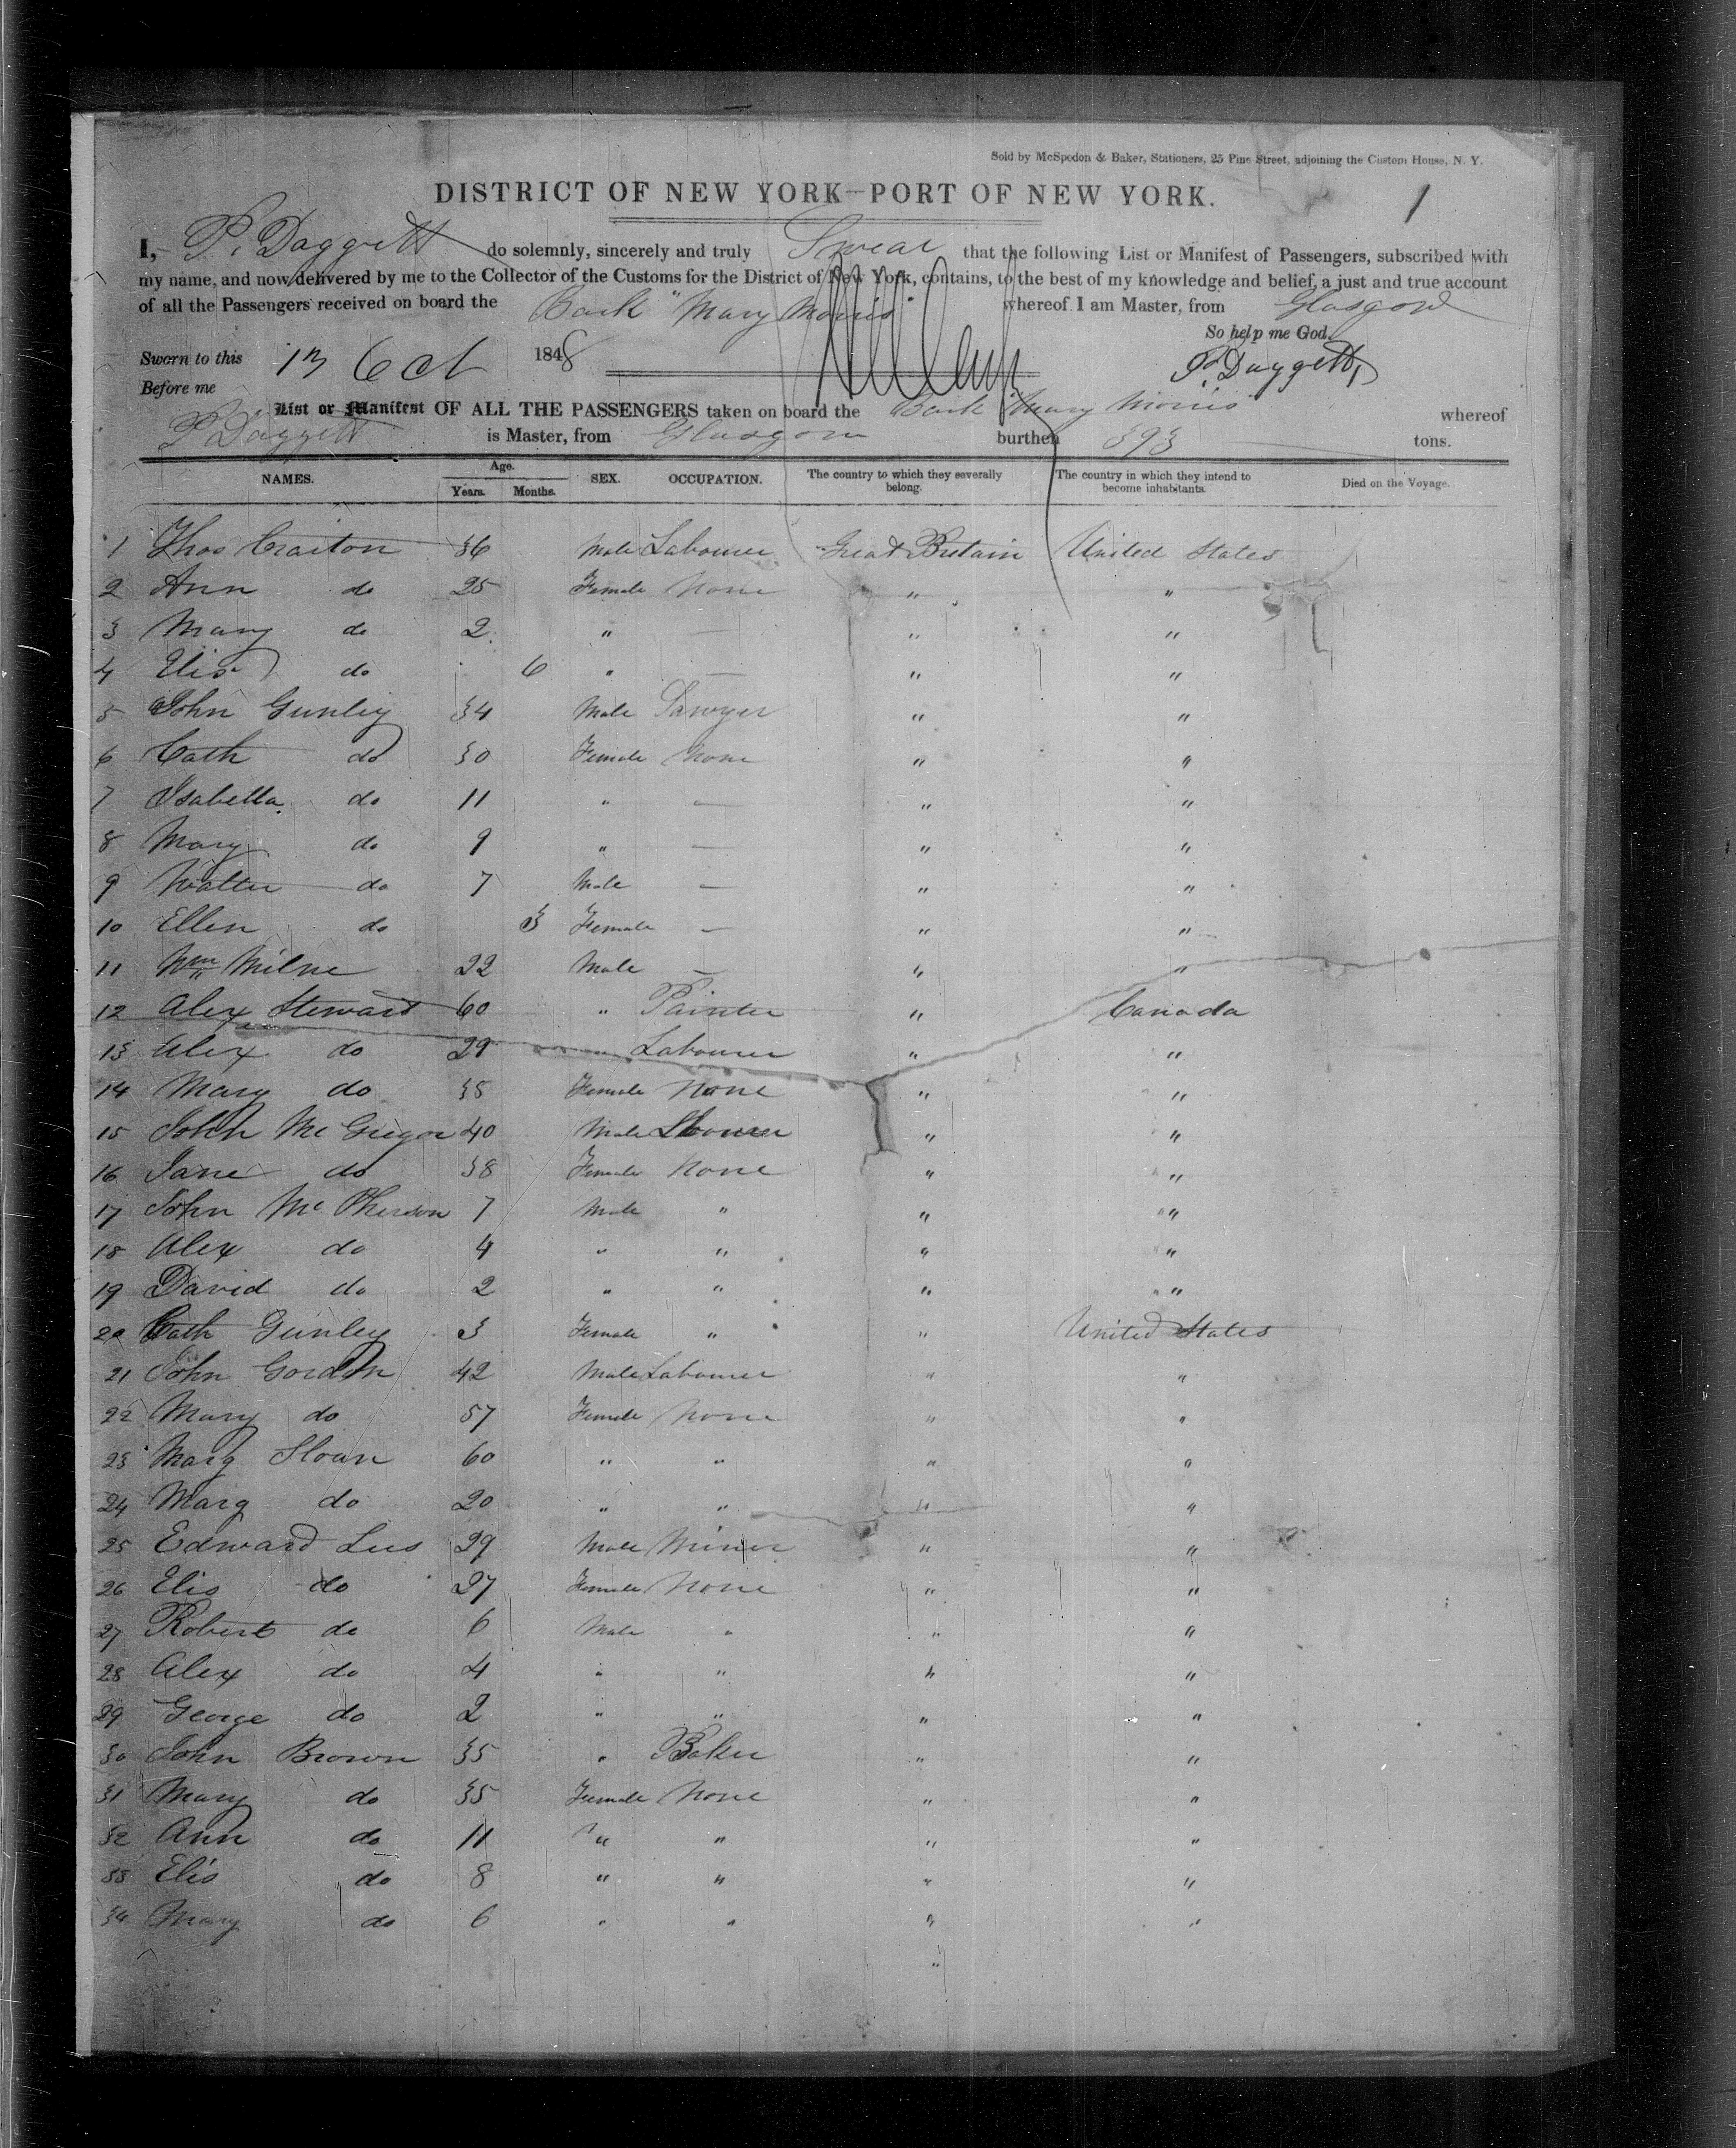 Sold by McSpedon & Baker, Stationers, 25 Pine Street, adjoining the Custom House, N. Y.
1
DISTRICT OF NEW YORK—PORT OF NEW YORK.
I, P. Daggett do solemnly, sincerely and truly Swear that the following List or Manifest of Passengers, subscribed with
my name, and now delivered by me to the Collector of the Customs for the District of New York, contains, to the best of my knowledge and belief, a just and true account
of all the Passengers received on board the Bark "Mary Morris" whereof I am Master, from Glasgow
So help me God.
Sworn to this 13 Oct 1848 P. Daggett
Before me
List or Manifest OF ALL THE PASSENGERS taken on board the Bark Mary Morris whereof
P Daggett is Master, from Glasgow burthen 393 tons.
NAMES. Age. Years. Months. SEX. OCCUPATION. The country to which they severally belong. The country in which they intend to become inhabitants. Died on the Voyage.
1 Thos Craiton 36 Male Labourer Great Britain United States
2 Ann do 25 Female None " "
3 Mary do 2 " — " "
4 Elis do 6 " — " "
5 John Gunley 34 Male Sawyer " "
6 Cath do 30 Female None " "
7 Isabella do 11 " — " "
8 Mary do 9 " — " "
9 Walter do 7 Male — " "
10 Ellen do 3 Female — " "
11 Wm Milne 22 Male — " "
12 Alex Steward 60 " Painter " Canada
13 Alex do 29 Labourer " "
14 Mary do 35 Female None " "
15 John McGregor 40 Male " "
16 Jane do 38 Female None " "
17 John McPherson 7 Male " " "
18 Alex do 4 " " " "
19 David do 2 " " " "
20 Cath Gunley 3 Female " " United States
21 John Gordon 42 Male Labourer " "
22 Mary do 57 Female None " "
23 Marg Sloan 60 " " " "
24 Marg do 20 " " " "
25 Edward Lees 29 Male Miner " "
26 Elis do 27 Female None " "
27 Robert do 6 Male " " "
28 Alex do 4 " " " "
29 George do 2 " " " "
30 John Brown 35 " Baker " "
31 Mary do 35 Female None " "
32 Ann do 11 " " " "
33 Elis do 8 " " " "
34 Mary do 6 " " " "
"